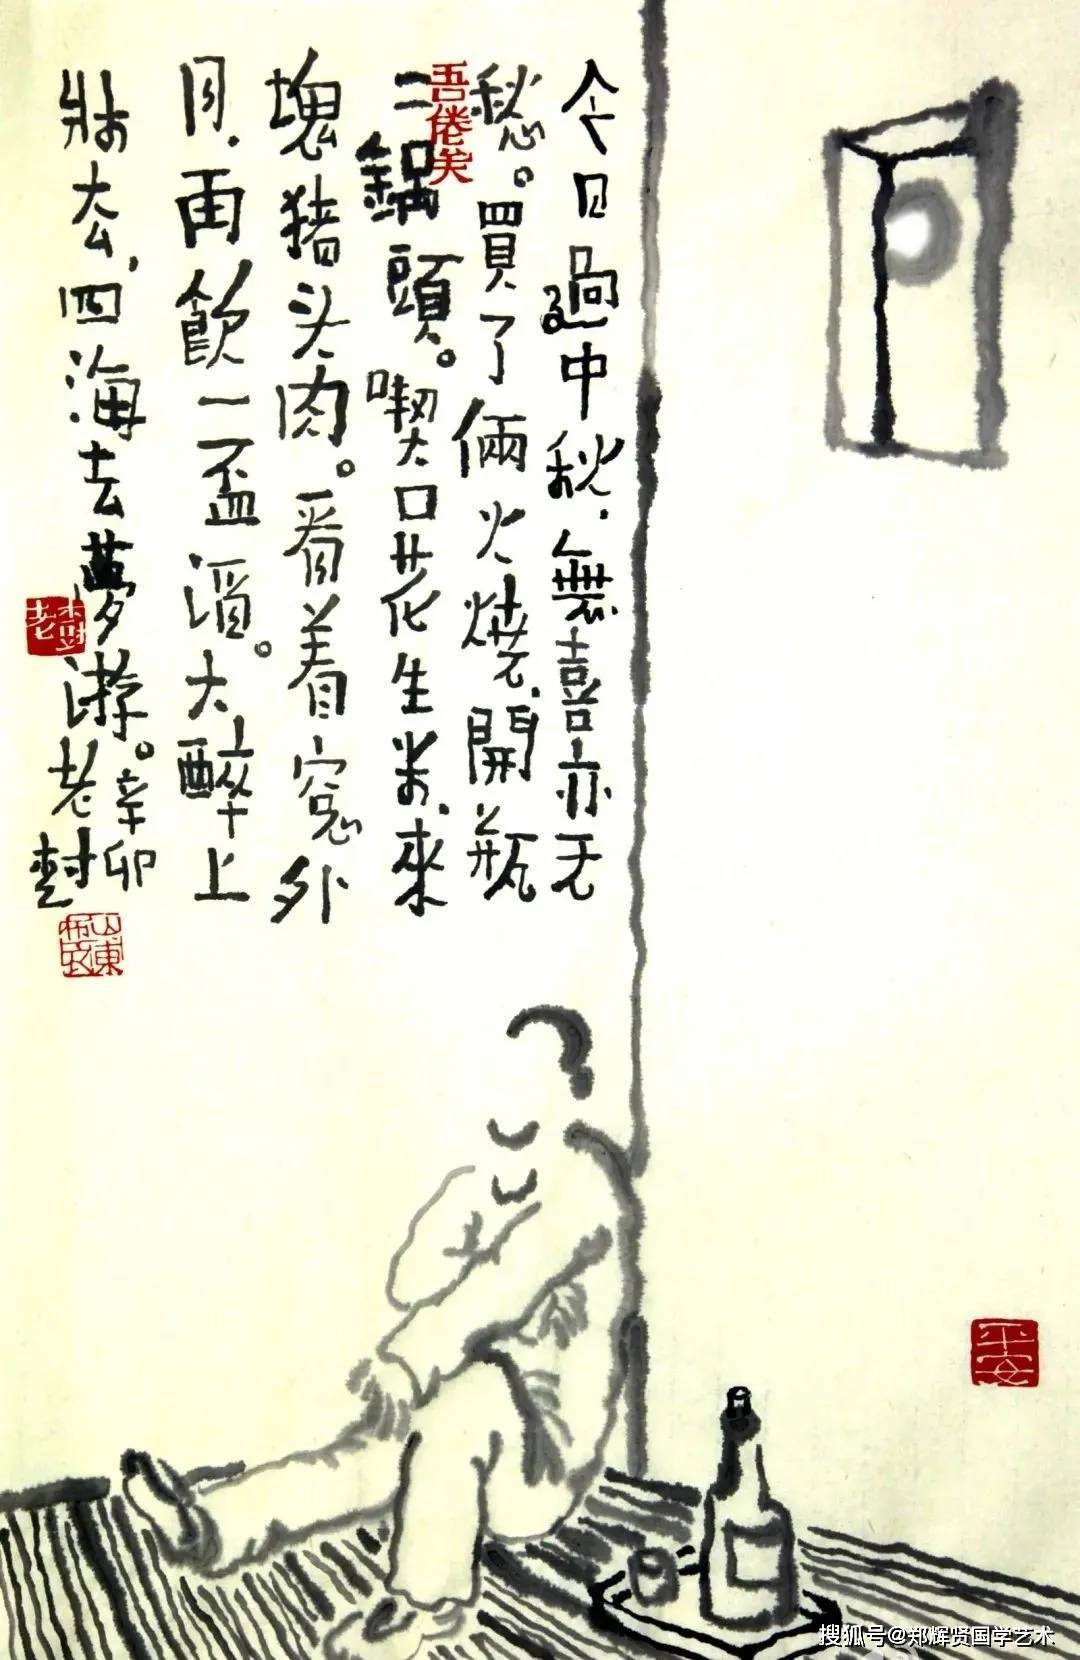 今日過中秋，無喜亦无
愁。買了倆火燒，開瓶
二鍋頭。喫口花生米，來
塊猪头肉。看着窓外
月，再飲一盃酒。大醉上
牀去，四海去夢游。辛卯
老樹
吾倦矣
老樹
山東
平安
搜狐号@郑辉贤国学艺术